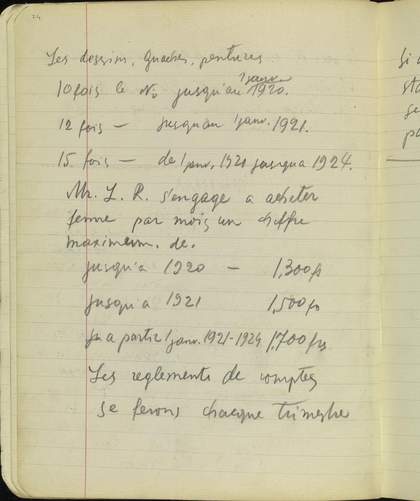 24
Les dessins, Guaches, pentures
10 fois le No jusqu'au 1 janv 1920.
12 fois — jusqu'au 1 janv. 1921.
15 fois — de 1 janv. 1921 jusqua 1924.
Mr. L. R. s'engage a acheter
ferme par mois un chiffre
maximum. de.
jusqu'a 1920 — 1,300 frs
jusqu a 1921 1,500 frs
a partir 1 janv. 1921-1924 1,700 frs
Les reglements de comptes
se ferons chacque trimestre